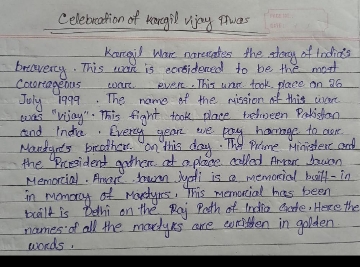 Celebration of Kargil Vijay Diwas
Kargil War narreates the story of India's
breavery. This war is considered to be the most
Courageous ware evere. This war took place on 26
July 1999. The name of the mission of this ware
was "Vijay". This fight took place between Pakistan
and India. Every year we pay hamage to our
Martyres breother on this day. The Prime Minister and
the President gather at a place called Amar Jawan
Memorial. Amar Jawan Jyoti is a memorial built-in
in Memory of Martyrs. This memorial has been
built is Delhi on the Raj Path of India Gate. Here the
names of all the mardyrs are written in golden
words.